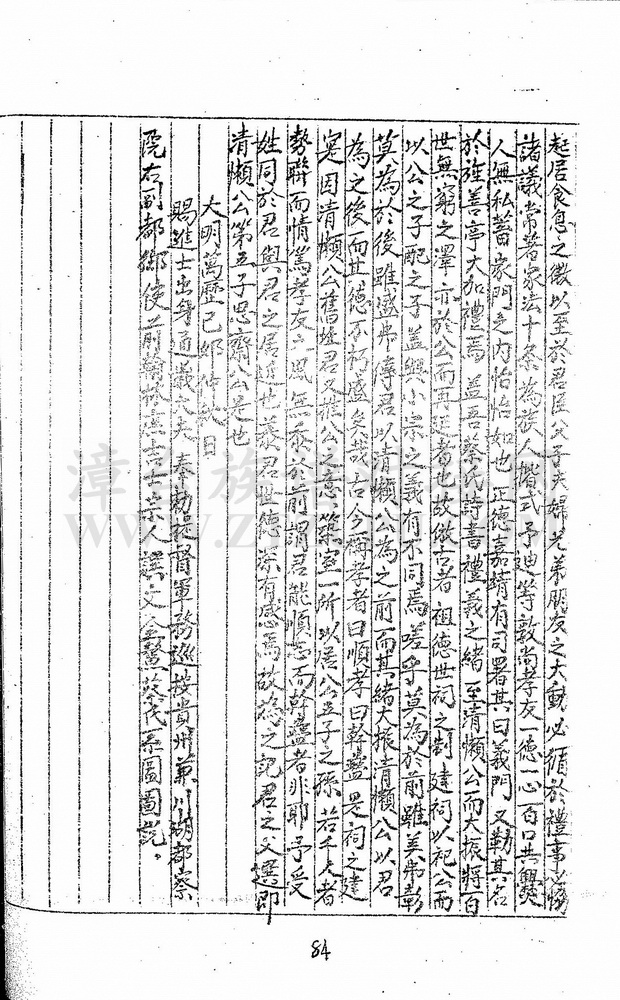 起居食息之微以至於君臣父子夫婦兄弟朋友之大動必循於禮事必協
諸議常著家法十条為族人揩式予廸等敦尚孝友一德一心百口共爨
人無私蓄家門之内怡怡如也正德嘉靖有司署其曰義門又勒其名
於旌善亭大加禮焉盖吾蔡氏詩書禮義之緒至清懶公而大振將百
世無窮之澤亦於公而再延者也故倣古者祖德世祠之制建祠以祀公而
以公之子配之子盖與小宗之義有不同焉嗟乎莫為於前雖美弗彰
莫為於後雖盛弗傳君以清懶公為之前而其緒大振清懶公以君
為之後而其德不朽盛矣哉古今稱孝者曰順孝曰幹蠱是祠之建
寔因清懶公舊址君又推公之意築室一所以居公五子之孫若千人者
勢聯而情篤孝友之風無忝於前謂君能順志而幹蠱者非耶予受
姓同於君與君之居近也慕君世德深有感焉故為之記君之父選即
清懶公第五子思齋公是也
大明萬歷己卯仲秋日
賜進士出身通議大夫奉勅提督軍務巡按貴州兼川湖都察
院右副都御使前翰林庶吉士宗人譔文全鰲蔡氏系圖圖説。
84